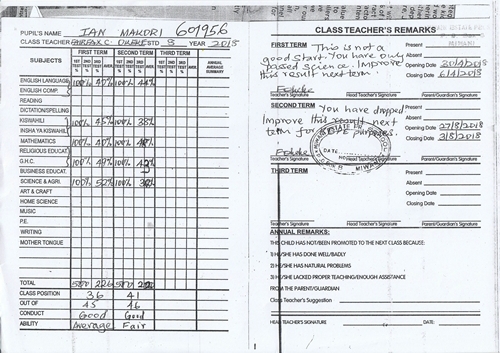 PUPIL'S NAME IAN MAKORI 601956
CLASS TEACHER FAIRFAX C. OKEYE STD 3 YEAR 2018
SUBJECTS
FIRST TERM SECOND TERM THIRD TERM
1ST TEST 2ND TEST 3RD TEST AVER. 1ST TEST 2ND TEST 3RD TEST AVER. 1ST TEST 2ND TEST 3RD TEST AVER.
ANNUAL AVERAGE SUMMARY
ENGLISH LANGUAGE 100%
ENGLISH COMP.
READING
DICTATION/SPELLING
KISWAHILI 100% 45% 100% 38%
INSHA YA KISWAHILI
MATHEMATICS 100% 40% 100%
RELIGIOUS EDUCAT.
G.H.C. 100% 49% 100%
BUSINESS EDUCAT.
SCIENCE & AGRI. 100% 52% 100%
ART & CRAFT
HOME SCIENCE
MUSIC
P.E.
WRITING
MOTHER TONGUE
TOTAL 500 226 500
CLASS POSITION 36 41
OUT OF 45 46
CONDUCT Good Good
ABILITY Average Fair
CLASS TEACHER'S REMARKS
FIRST TERM This is not a
good start. You have only
passed science. Improve
this result next term.
Present
Absent
Opening Date 30/4/2018
Closing Date 6/4/2018
Teacher's Signature Head Teacher's Signature Parent/Guardian's Signature
SECOND TERM You have dropped
Improve this result next
term for purposes.
Present
Absent
Opening Date 27/8/2018
Closing Date 3/8/2018
Teacher's Signature Head Teacher's Signature Parent/Guardian's Signature
THIRD TERM
Present
Absent
Opening Date
Closing Date
Teacher's Signature Head Teacher's Signature Parent/Guardian's Signature
ANNUAL REMARKS:
THIS CHILD HAS/NOT/BEEN PROMOTED TO THE NEXT CLASS BECAUSE:
1) HE/SHE HAS DONE WELL/BADLY
2) HE/SHE HAS NATURAL PROBLEMS
3) HE/SHE LACKED PROPER TEACHING/ENOUGH ASSISTANCE
FROM THE PARENT/GUARDIAN
Class Teacher's Suggestion
HEAD TEACHER'S SIGNATURE DATE: